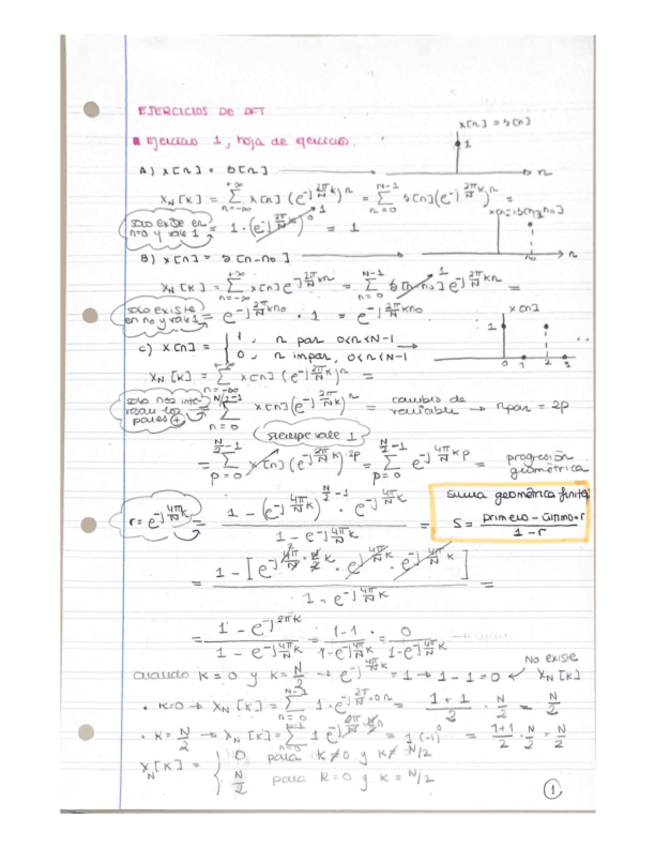 EJERCICIOS DE DFT
Ejercicio 1, hoja de ejercicio.
x[n] = δ[n]
1
n
A) x[n] = δ[n]
X_N[k] = Σ_{n=-∞}^{+∞} x[n] (e^{-j 2π/N k})^n = Σ_{n=0}^{N-1} δ[n] (e^{-j 2π/N k})^n =
solo existe en n=0 y vale 1
= 1 · (e^{-j 2π/N k})^0 = 1
1
x[n] = δ[n-n0]
n0
n
B) x[n] = δ[n-n0]
X_N[k] = Σ_{n=-∞}^{+∞} x[n] e^{-j 2π/N kn} = Σ_{n=0}^{N-1} δ[n-n0] e^{-j 2π/N kn} =
1
solo existe en n0 y vale 1
= e^{-j 2π/N kn0} · 1 = e^{-j 2π/N kn0}
x[n]
1
0 1 2 3
C) x[n] = { 1, n par 0<n<N-1
0, n impar, 0<n<N-1
X_N[k] = Σ_{n=-∞}^{+∞} x[n] (e^{-j 2π/N k})^n =
solo nos interesan los pares
= Σ_{n=0}^{N/2-1} x[n] (e^{-j 2π/N k})^n = cambio de variable → n par = 2p
siempre vale 1
= Σ_{p=0}^{N/2-1} x[n] (e^{-j 2π/N k})^{2p} = Σ_{p=0}^{N/2-1} e^{-j 4π/N kp} = progresión geométrica
r = e^{-j 4π/N k}
= (1 - (e^{-j 4π/N k})^{N/2-1} · e^{-j 4π/N k}) / (1 - e^{-j 4π/N k}) =
suma geométrica finita
S = (primero - último·r) / (1-r)
= (1 - [e^{-j 4π/N · N/2 k} · e^{j 4π/N k} · e^{-j 4π/N k}]) / (1 - e^{-j 4π/N k}) =
= (1 - e^{-j 2πk}) / (1 - e^{-j 4π/N k}) = (1-1) / (1-e^{-j 4π/N k}) = 0 / (1-e^{-j 4π/N k})
No existe
cuando k=0 y k=N/2 → e^{-j 4π/N k} = 1 → 1-1=0 ← X_N[k]
· k=0 → X_N[k] = Σ_{n=0}^{N-1} 1·e^{-j 2π/N ·0n} = (1+1)/2 · N/2 = N/2
· k=N/2 → X_N[k] = Σ 1 e^{-j} = = (1+1)/2 · N/2 = N/2
X_N[k] = { 0 para k≠0 y k≠N/2
N/2 para k=0 y k=N/2
1